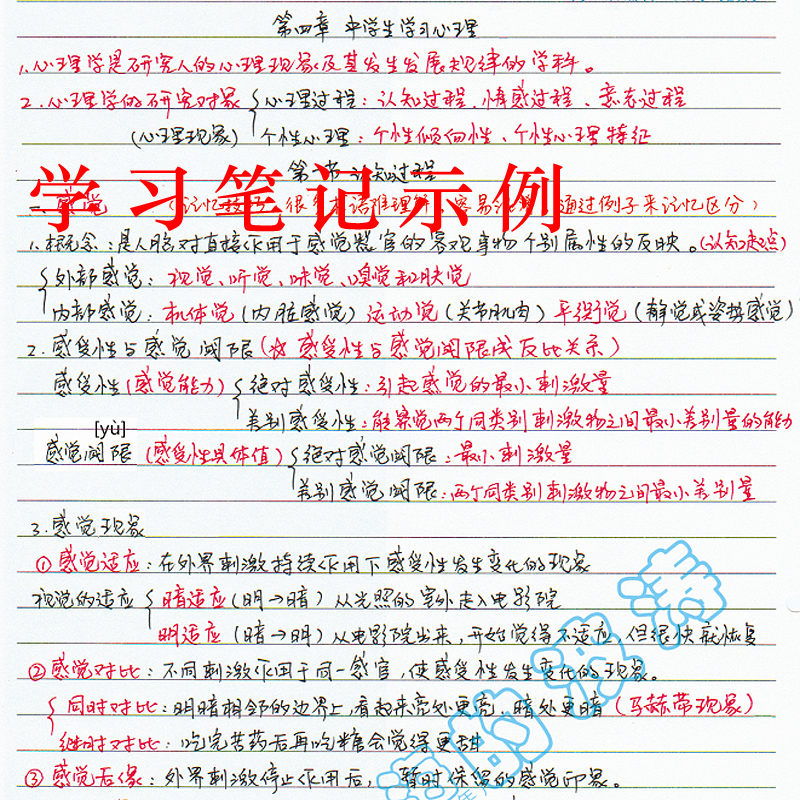 第四章 中学生学习心理
1.心理学是研究人的心理现象及其发生发展规律的学科。
2.心理学的研究对象 心理过程：认知过程、情感过程、意志过程
(心理现象) 个性心理：个性倾向性、个性心理特征
第一节 认知过程
学习笔记示例
一、感觉 (记忆 很多术语难理解 容易 通过例子来记忆区分)
1.概念：是人脑对直接作用于感觉器官的客观事物个别属性的反映。(认知起点)
外部感觉：视觉、听觉、味觉、嗅觉和肤觉
内部感觉：机体觉(内脏感觉) 运动觉(关节肌肉) 平衡觉(静觉或姿势感觉)
2.感受性与感觉阈限(感受性与感觉阈限成反比关系)
感受性(感觉能力) 绝对感受性：引起感觉的最小刺激量
差别感受性：能察觉两个同类别刺激物之间最小差别量的能力
[yù]
感觉阈限 (感受性具体值) 绝对感觉阈限：最小刺激量
差别感觉阈限：两个同类别刺激物之间最小差别量
3.感觉现象
①感觉适应：在外界刺激持续作用下感受性发生变化的现象
视觉的适应 暗适应(明→暗) 从光照的室外走入电影院
明适应 (暗→明) 从电影院出来，开始觉得不适应，但很快就恢复
②感觉对比：不同刺激作用于同一感官，使感受性发生变化的现象。
同时对比：明暗相邻的边界上，看起来亮处更亮，暗处更暗 (马赫带现象)
继时对比：吃完苦药后再吃糖会觉得更甜
③感觉后像：外界刺激停止作用后，暂时保留的感觉印象。
的波涛